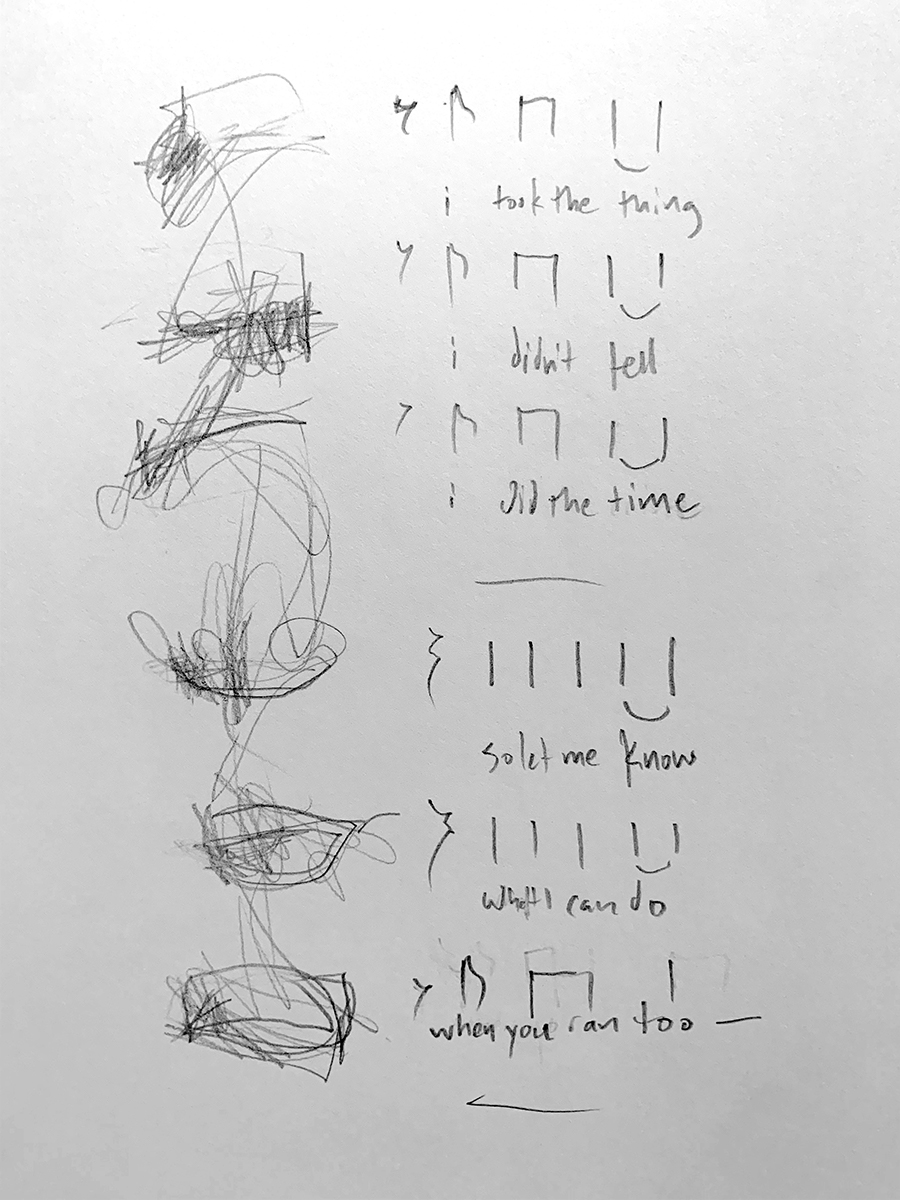 i took the thing
i didn't tell
i did the time
so let me know
what I can do
when you can too —